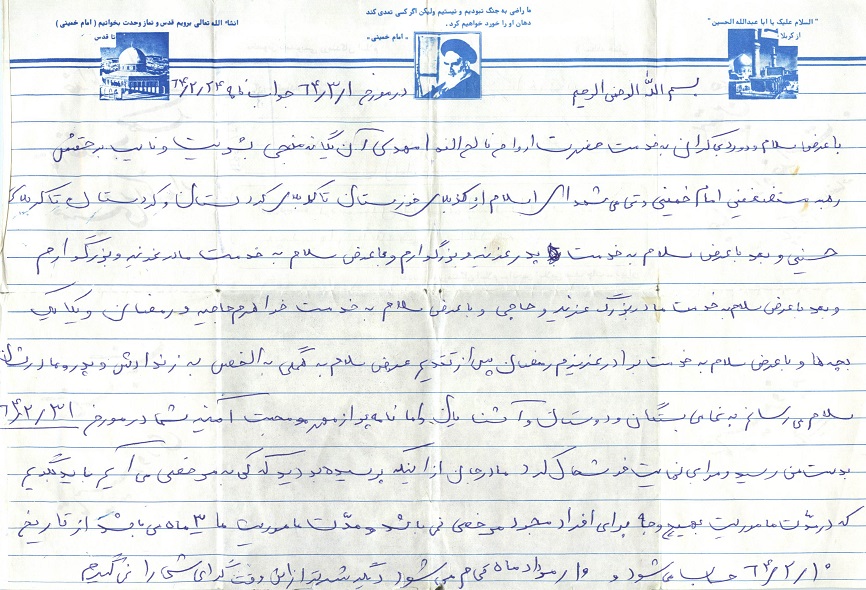 " السلام علیک یا ابا عبدالله الحسین "
از کربلا
ما راضی به جنگ نبودیم و نیستیم ولیکن اگر کسی تعدی کند
دهان او را خورد خواهیم کرد.
- امام خمینی -
انشاء الله تعالی برویم قدس و نماز وحدت بخوانیم ( امام خمینی )
تا قدس
بسم الله الرحمن الرحیم
در مورخ ۶۴/۳/۱ جواب نامه ۶۴/۲/۲۴
با عرض سلام و درود بیکران به خدمت حضرت ارواحنا له الفدا مهدی آن یگانه منجی بشریت و نایب بر حقش
رهبر مستضعفین امام خمینی و تمامی شهدای اسلام از کربلای خوزستان تا کربلای کردستان و کردستان تا کربلای
حسینی و بعد با عرض سلام به خدمت پدر عزیز و بزرگوارم و با عرض سلام به خدمت مادر عزیز و بزرگوارم
و بعد با عرض سلام به خدمت مادربزرگ عزیز و حاجی و با عرض سلام به خدمت خواهرم حاجیه و رمضان و یکایک
بچه‌ها و با عرض سلام به خدمت برادر عزیزم رمضان پس از تقدیم عرض سلام به گملی به الخص به زن دادش و پدر و مادرشان
سلام می‌رسانم به تمامی بستگان و دوستان و آشنایان و اما نامه پر از مهر و محبت آمیز شما در مورخ ۶۴/۲/۳۱
بدست من رسید و مرا بی نهایت خوشحال کرد مادر جان از اینکه پرسیده بودید که کی به مرخصی می آیم باید بگویم
که در مدت ماموریت بهیچ وجه برای افراد مجرد مرخصی نمی باشد و مدت ماموریت ما ۳ ماه می باشد از تاریخ
۶۴/۲/۱۰ حساب می‌شود و ۱۰ مرداد ماه تمام می شود دیگه بیشتر از این وقت گرامی شما را نمی گیرم